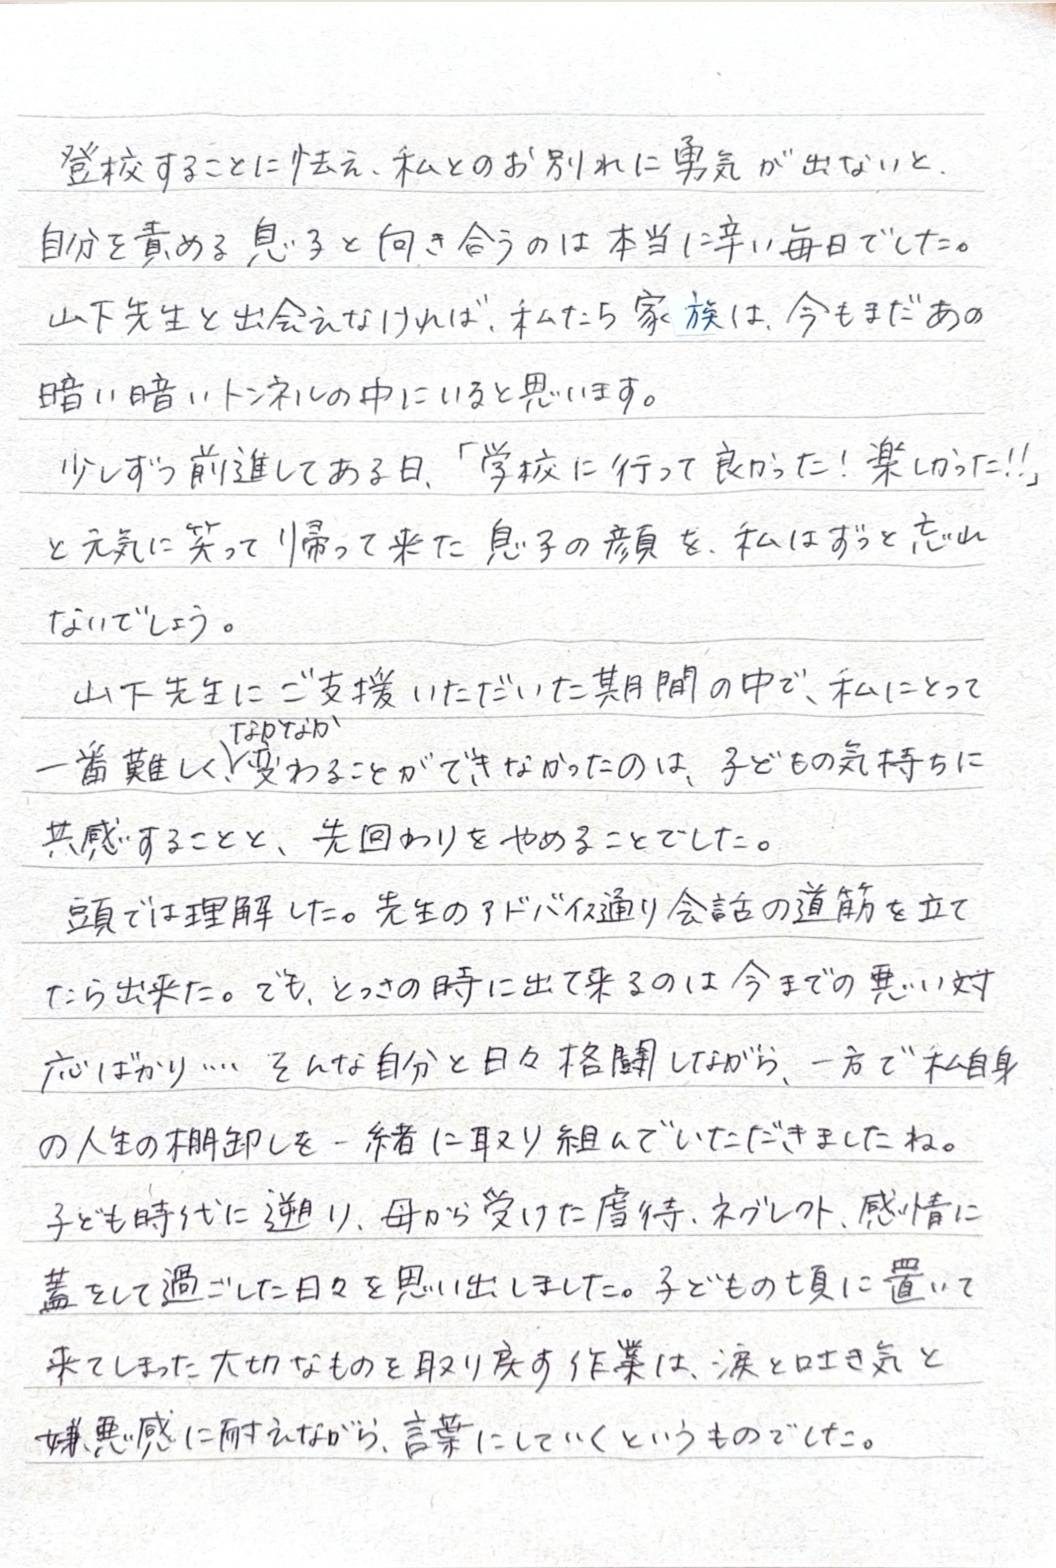 登校することに怯え、私とのお別れに勇気が出ないと、
自分を責める息子と向き合うのは本当に辛い毎日でした。
山下先生と出会えなければ、私たち家族は、今もまだあの
暗い暗いトンネルの中にいると思います。
少しずつ前進してある日、「学校に行って良かった！楽しかった!!」
と元気に笑って帰って来た息子の顔を、私はずっと忘れ
ないでしょう。
山下先生にご支援いただいた期間の中で、私にとって
なかなか
一番難しく、変わることができなかったのは、子どもの気持ちに
共感することと、先回わりをやめることでした。
頭では理解した。先生のアドバイス通り会話の道筋を立て
たら出来た。でも、とっさの時に出て来るのは今までの悪い対
応ばかり…. そんな自分と日々格闘しながら、一方で私自身
の人生の棚卸しを一緒に取り組んでいただきましたね。
子ども時代に遡り、母から受けた虐待、ネグレクト、感情に
蓋をして過ごした日々を思い出しました。子どもの頃に置いて
来てしまった大切なものを取り戻す作業は、涙と吐き気と
嫌悪感に耐えながら、言葉にしていくというものでした。